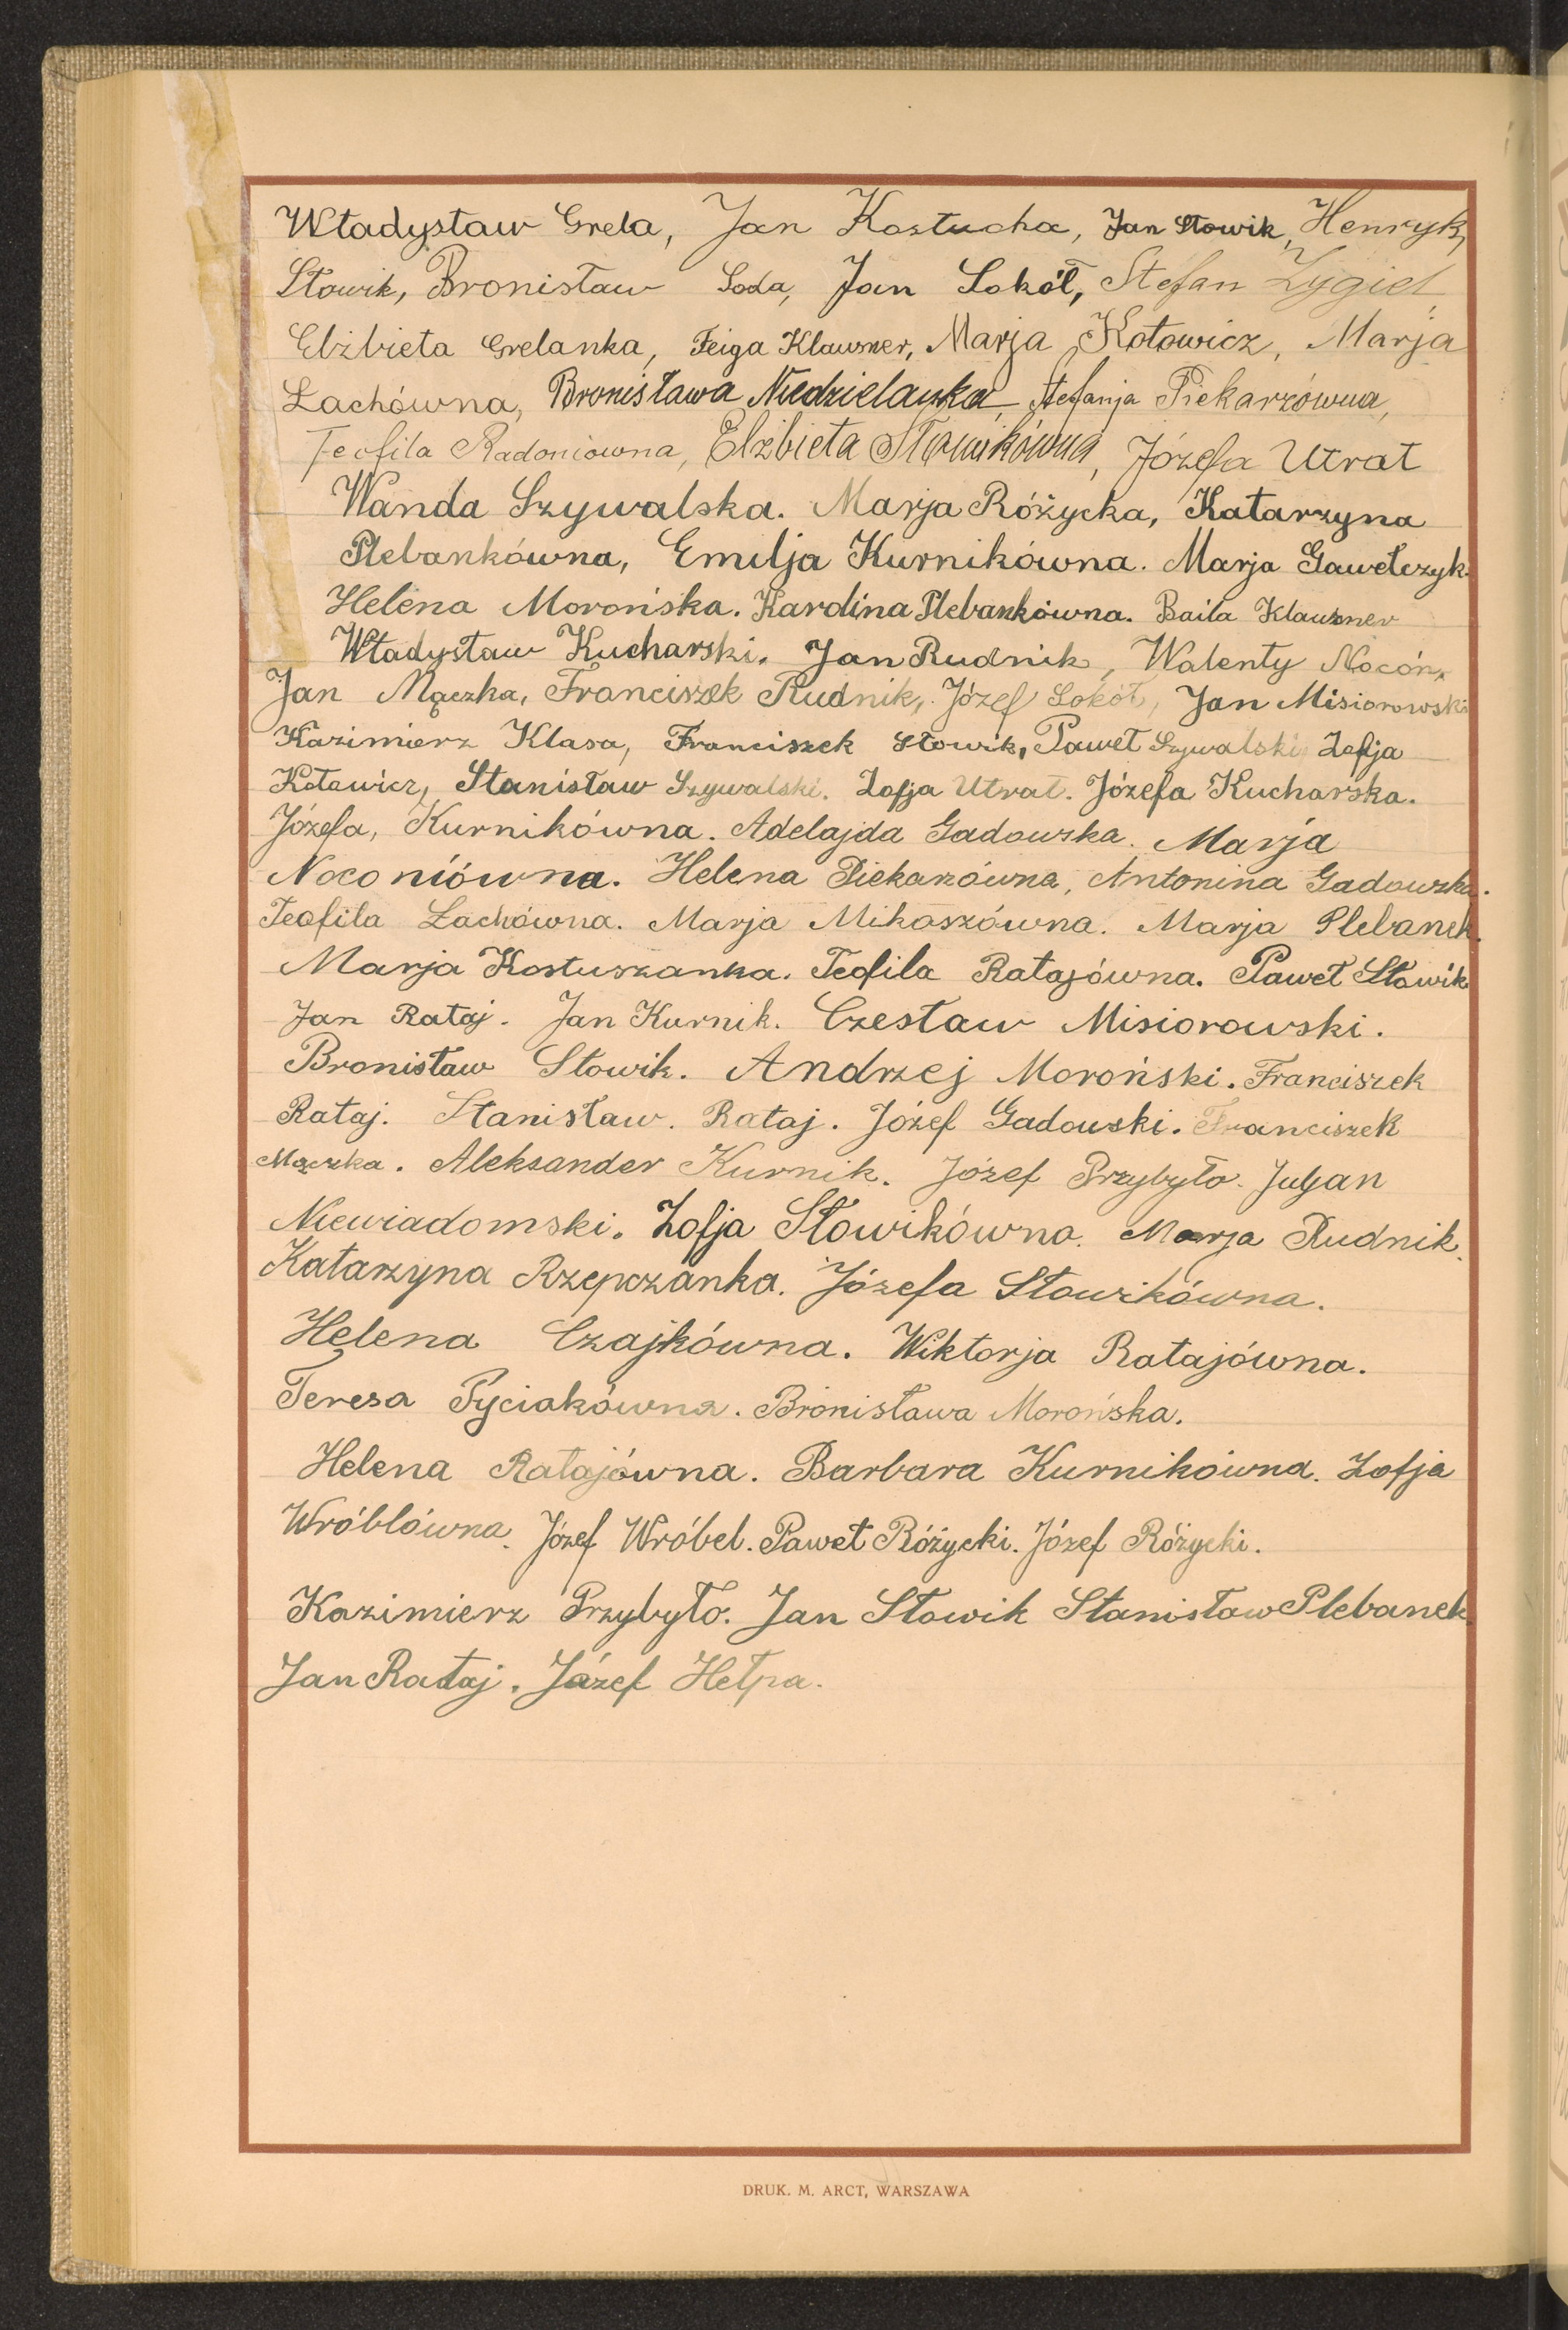 Władysław Grela, Jan Kostucha, Jan Słowik, Henryk,
Słowik, Bronisław Soda, Jan Sokół, Stefan Zygiel
Elżbieta Grelanka, Feiga Klausner, Marja Kotowicz, Marja
Łachówna, Bronisława Niedzielanka, Stefanja Piekarzówna,
Teofila Radoniówna, Elżbieta Słowikówna, Józefa Utrat
Wanda Szywalska. Marja Różycka, Katarzyna
Plebankówna, Emilja Kurnikówna. Marja Gawełczyk.
Helena Morońska. Karolina Plebankówna. Baila Klausner
Władysław Kucharski. Jan Rudnik, Walenty Nocóń,
Jan Mączka, Franciszek Rudnik, Józef Sokół, Jan Misiorowski
Kazimierz Klasa, Franciszek Słowik, Paweł Szywalski, Zofja
Kotowicz, Stanisław Szywalski. Zofja Utrat. Józefa Kucharska.
Józefa, Kurnikówna. Adelajda Gadowska. Marja
Noconiówna. Helena Piekarzówna, Antonina Gadowska.
Teofila Łachówna. Marja Mikoszówna. Marja Plebanek.
Marja Kostuszanka. Teofila Ratajówna. Paweł Słowik
Jan Rataj. Jan Kurnik. Czesław Misiorowski.
Bronisław Słowik. Andrzej Moroński. Franciszek
Rataj. Stanisław. Rataj. Józef Gadowski. Franciszek
Mączka. Aleksander Kurnik. Józef Przybyło. Juljan
Niewiadomski. Zofja Słowikówna. Marja Rudnik.
Katarzyna Rzepczanka. Józefa Słowikówna.
Helena Czajkówna. Wiktorja Ratajówna.
Teresa Pyciakówna. Bronisława Morońska.
Helena Ratajówna. Barbara Kurnikówna. Zofja
Wróblówna. Józef Wróbel. Paweł Różycki. Józef Różycki.
Kazimierz Przybyło. Jan Słowik Stanisław Plebanek.
Jan Rataj. Józef Hełpa.
DRUK. M. ARCT, WARSZAWA